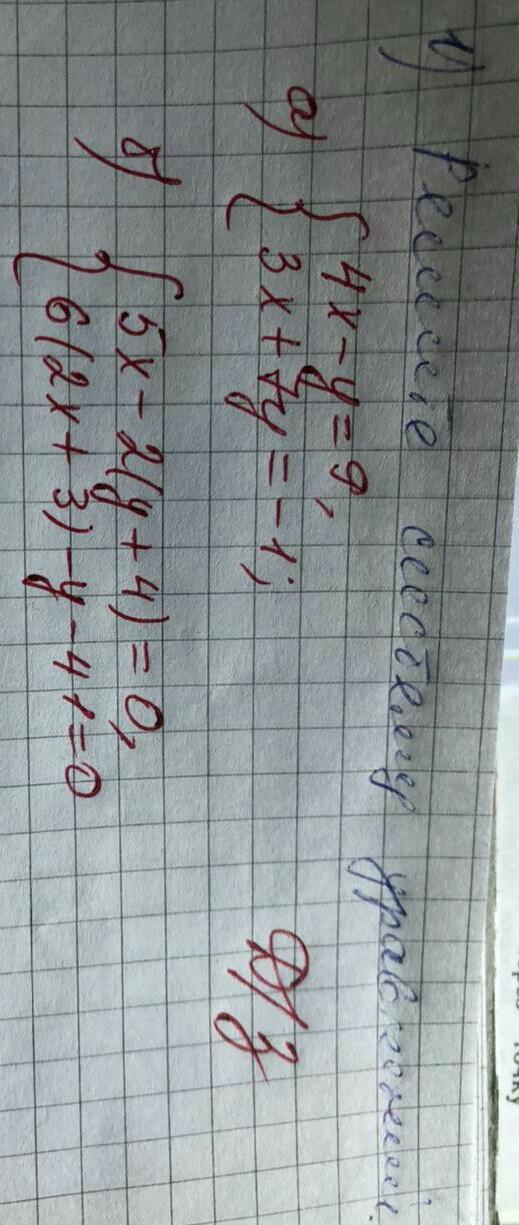 1) Решите систему уравнений.
а) { 4x - y = 9,
3x + 7y = -1;
б) { 5x - 2(y + 4) = 0,
6(2x + 3) - y - 41 = 0
Д/з